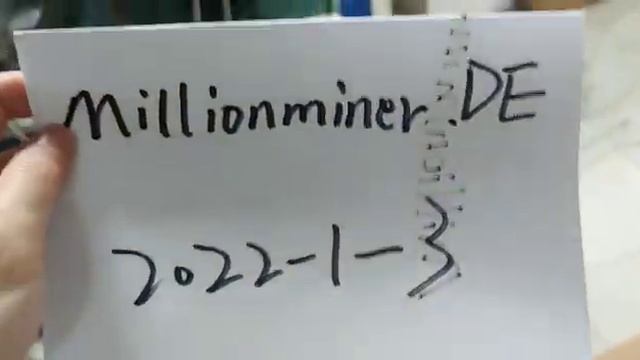 Millionminer.DE
2022-1-3